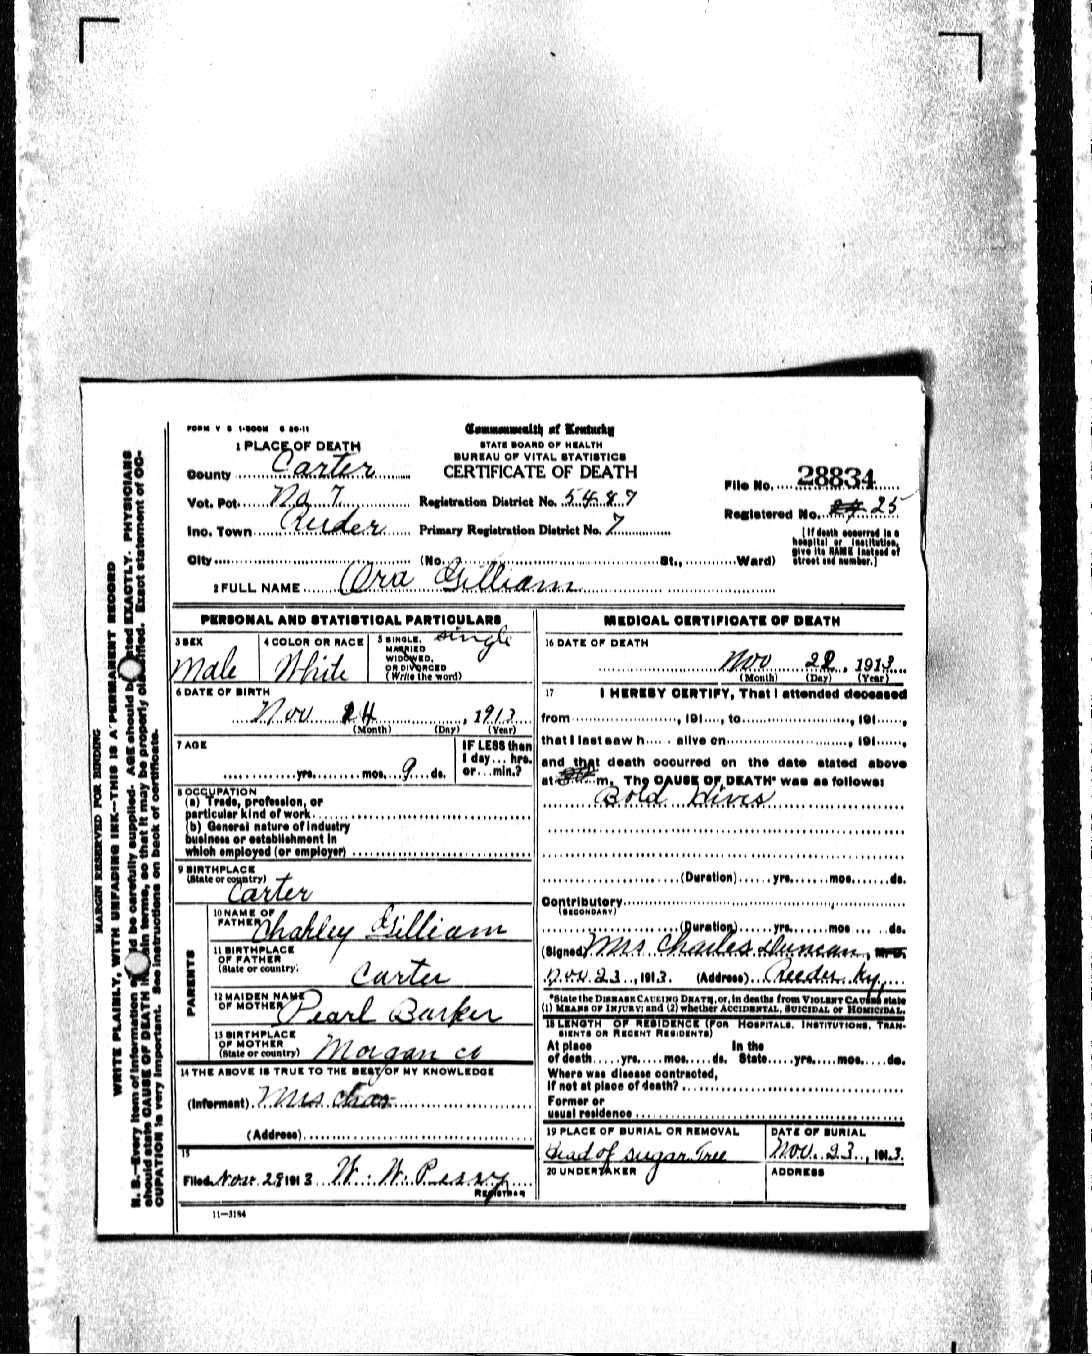 FORM V S 1-500M 6 20-11
Commonwealth of Kentucky
STATE BOARD OF HEALTH
BUREAU OF VITAL STATISTICS
CERTIFICATE OF DEATH
1 PLACE OF DEATH
County Carter
Vot. Pct. No 7
Inc. Town Reeder
City (No. St., Ward)
Registration District No. 5487
Primary Registration District No. 7
File No. 28834
Registered No. 25
[If death occurred in a
hospital or institution,
give its NAME instead of
street and number.]
2 FULL NAME Ora Gilliam
PERSONAL AND STATISTICAL PARTICULARS
3 SEX
Male
4 COLOR OR RACE
White
5 SINGLE,
MARRIED
WIDOWED,
OR DIVORCED
(Write the word)
single
6 DATE OF BIRTH
Nov 14, 1913
(Month) (Day) (Year)
7 AGE
yrs. mos. 9 ds.
IF LESS than
1 day... hrs.
or... min.?
8 OCCUPATION
(a) Trade, profession, or
particular kind of work
(b) General nature of industry
business or establishment in
which employed (or employer)
9 BIRTHPLACE
(State or country)
Carter
PARENTS
10 NAME OF
FATHER Charley Gilliam
11 BIRTHPLACE
OF FATHER
(State or country)
Carter
12 MAIDEN NAME
OF MOTHER Pearl Barker
13 BIRTHPLACE
OF MOTHER
(State or country) Morgan co
14 THE ABOVE IS TRUE TO THE BEST OF MY KNOWLEDGE
(Informant) Mrs Chas
(Address)
15
Filed Nov 28 1913 W. W. Perry
REGISTRAR
11—3184
MEDICAL CERTIFICATE OF DEATH
16 DATE OF DEATH
Nov 22, 1913
(Month) (Day) (Year)
17 I HEREBY CERTIFY, That I attended deceased
from , 191 , to , 191 ,
that I last saw h alive on , 191 ,
and that death occurred on the date stated above
at m. The CAUSE OF DEATH* was as follows:
Bold Hives
(Duration) yrs. mos. ds.
Contributory
(SECONDARY)
(Duration) yrs. mos. ds.
(Signed) Mrs Charles Duncan, M.D.
Nov. 23, 1913. (Address) Reeder Ky,
*State the DISEASE CAUSING DEATH, or, in deaths from VIOLENT CAUSES state
(1) MEANS OF INJURY; and (2) whether ACCIDENTAL, SUICIDAL or HOMICIDAL.
18 LENGTH OF RESIDENCE (FOR HOSPITALS, INSTITUTIONS, TRAN-
SIENTS OR RECENT RESIDENTS)
At place In the
of death yrs. mos. ds. State yrs. mos. ds.
Where was disease contracted,
If not at place of death?
Former or
usual residence
19 PLACE OF BURIAL OR REMOVAL
Head of Sugar Tree
DATE OF BURIAL
Nov. 23, 1913.
20 UNDERTAKER
ADDRESS
MARGIN RESERVED FOR BINDING
WRITE PLAINLY, WITH UNFADING INK—THIS IS A PERMANENT RECORD
N. B.—Every item of information should be carefully supplied. AGE should be stated EXACTLY. PHYSICIANS
should state CAUSE OF DEATH in plain terms, so that it may be properly classified. Exact statement of OC-
CUPATION is very important. See instructions on back of certificate.